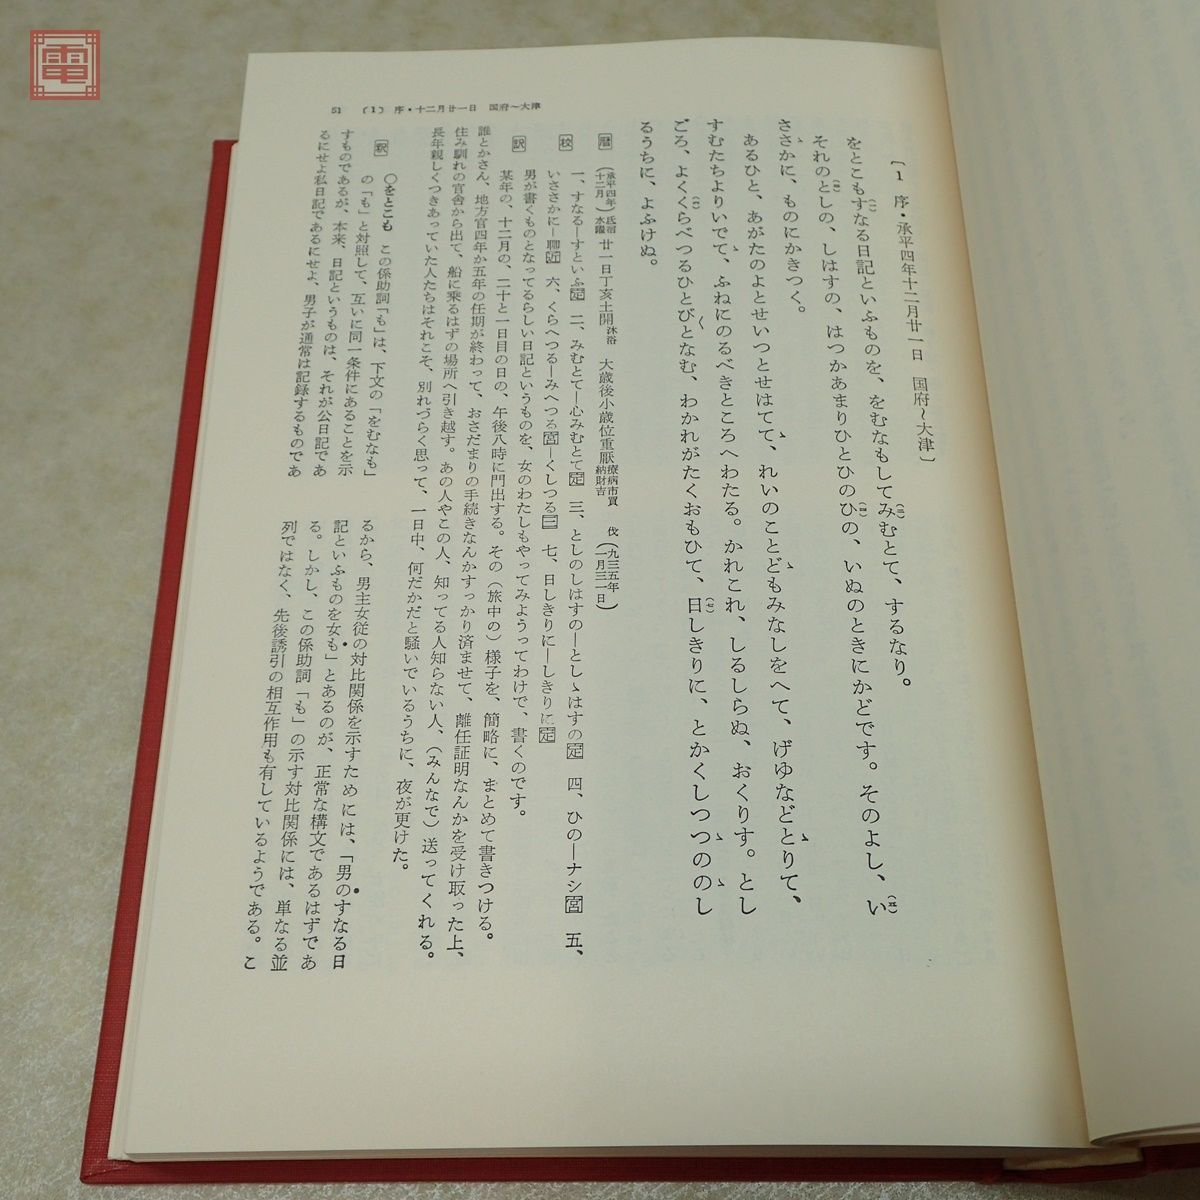 電
51 (1) 序・十二月廿一日 国府〜大津
〔1 序・承平四年十二月廿一日 国府〜大津〕
をとこもすなる日記といふものを、をむなもしてみむとて、するなり。
それのとしの、しはすの、はつかあまりひとひのひの、いぬのときにかどです。そのよし、い
さゝかに、ものにかきつく。
あるひと、あがたのよとせいつとせはてゝ、れいのことゞもみなしをへて、げゆなどとりて、
すむたちよりいでゝ、ふねにのるべきところへわたる。かれこれ、しるしらぬ、おくりす。とし
ごろ、よくくらべつるひとびとなむ、わかれがたくおもひて、日しきりに、とかくしつゝのゝし
るうちに、よふけぬ。
暦 (承平四年十二月) 氐宿水曜 廿一日丁亥土開 沐浴 大歳後小歳位重厭 療病市買納財吉 伐 (九三五年一月三一日)
校 一、すなる―すといふ定 二、みむとて―心みむとて定 三、としのしはすの―としゝはすの定 四、ひの―ナシ宮 五、
いささかに―聊近 六、くらへつる―みへつる宮―くしつる三 七、日しきりに―しきりに定
訳 男が書くものとなってるらしい日記というものを、女のわたしもやってみようってわけで、書くのです。
某年の、十二月の、二十と一日目の日の、午後八時に門出する。その(旅中の)様子を、簡略に、まとめて書きつける。
誰とかさん、地方官四年か五年の任期が終わって、おさだまりの手続きなんかすっかり済ませて、離任証明なんかを受け取った上、
住み馴れの官舎から出て、船に乗るはずの場所へ引き越す。あの人やこの人、知ってる人知らない人、(みんなで)送ってくれる。
長年親しくつきあっていた人たちはそれこそ、別れづらく思って、一日中、何だかだと騒いでいるうちに、夜が更けた。
釈 〇をとこも この係助詞「も」は、下文の「をむなも」
の「も」と対照して、互いに同一条件にあることを示
すものであるが、本来、日記というものは、それが公日記であ
るにせよ私日記であるにせよ、男子が通常は記録するものであ
るから、男主女従の対比関係を示すためには、「男のすなる日
記といふものを女も」とあるのが、正常な構文であるはずであ
る。しかし、この係助詞「も」の示す対比関係には、単なる並
列ではなく、先後誘引の相互作用も有しているようである。こ